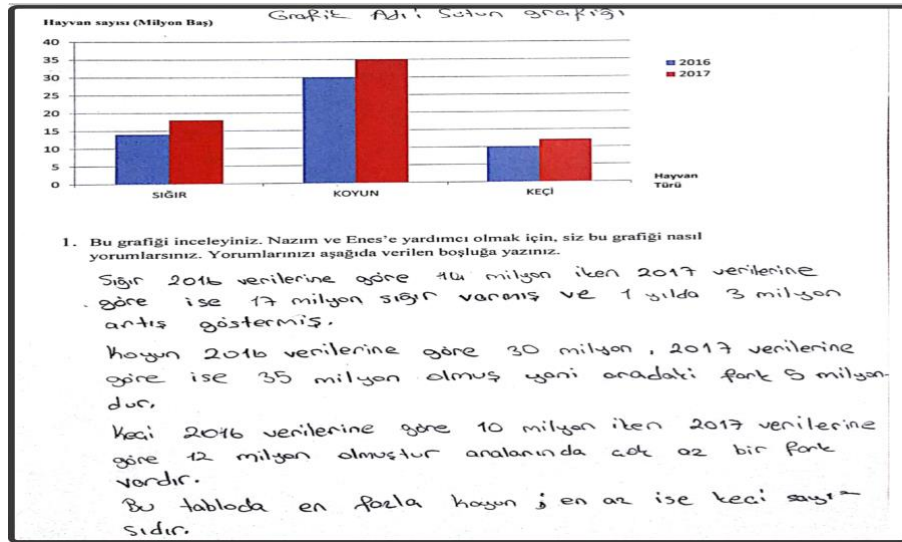 Grafik Adı: Sütun grafiği
Hayvan sayısı (Milyon Baş)
40
35
30
25
20
15
10
5
0
2016
2017
SIĞIR
KOYUN
KEÇİ
Hayvan
Türü
1. Bu grafiği inceleyiniz. Nazım ve Enes'e yardımcı olmak için, siz bu grafiği nasıl
yorumlarsınız. Yorumlarınızı aşağıda verilen boşluğa yazınız.
Sığır 2016 verilerine göre 14 milyon iken 2017 verilerine
göre ise 17 milyon sığır varmış ve 1 yılda 3 milyon
artış göstermiş.
Koyun 2016 verilerine göre 30 milyon, 2017 verilerine
göre ise 35 milyon olmuş yani aradaki fark 5 milyon-
dur.
Keçi 2016 verilerine göre 10 milyon iken 2017 verilerine
göre 12 milyon olmuştur aralarında çok az bir fark
vardır.
Bu tabloda en fazla koyun ; en az ise keçi sayı-
sıdır.